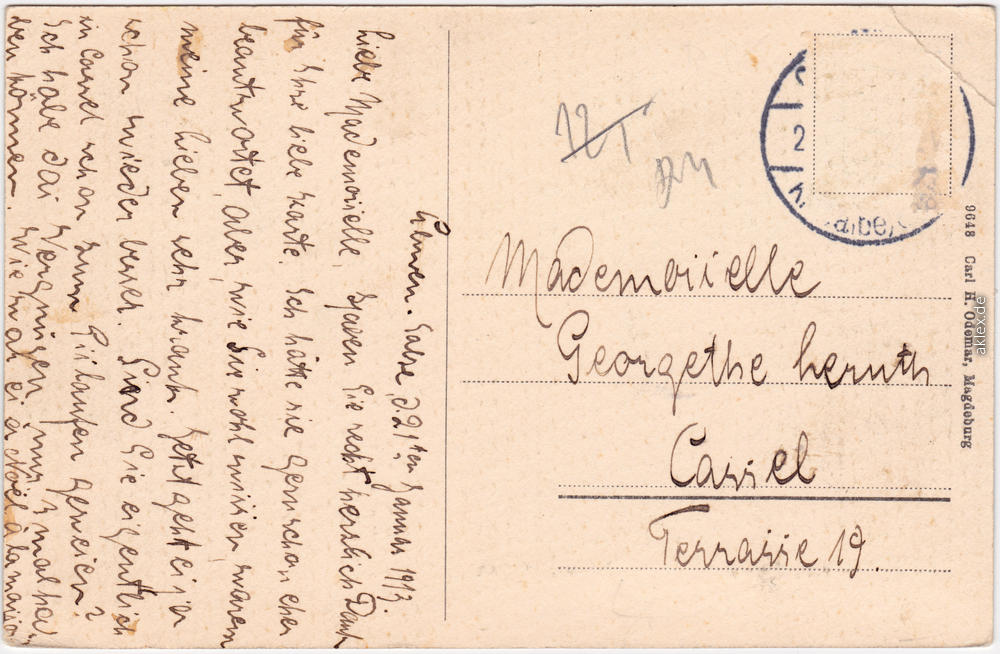 Löwen. Calbe, d. 21ten Januar 1913.
Liebe Mademoiselle, haben Sie recht herzlich Dank
für Ihre liebe Karte. Ich hätte sie gern schon eher
beantwortet, aber, wie Sie wohl wissen, waren
meine Lieben sehr krank. Jetzt geht es ja
schon wieder besser. Sind Sie eigentlich
in Cassel schon zum Eislaufen gewesen?
Ich habe das Vergnügen nur 3 mal ha-
ben können. Wie war es à Noël à la maison
12 T
Mademoiselle
Georgethe
Cassel
Terrasse 19.
9648 Carl H. Odemar, Magdeburg
aklex.de